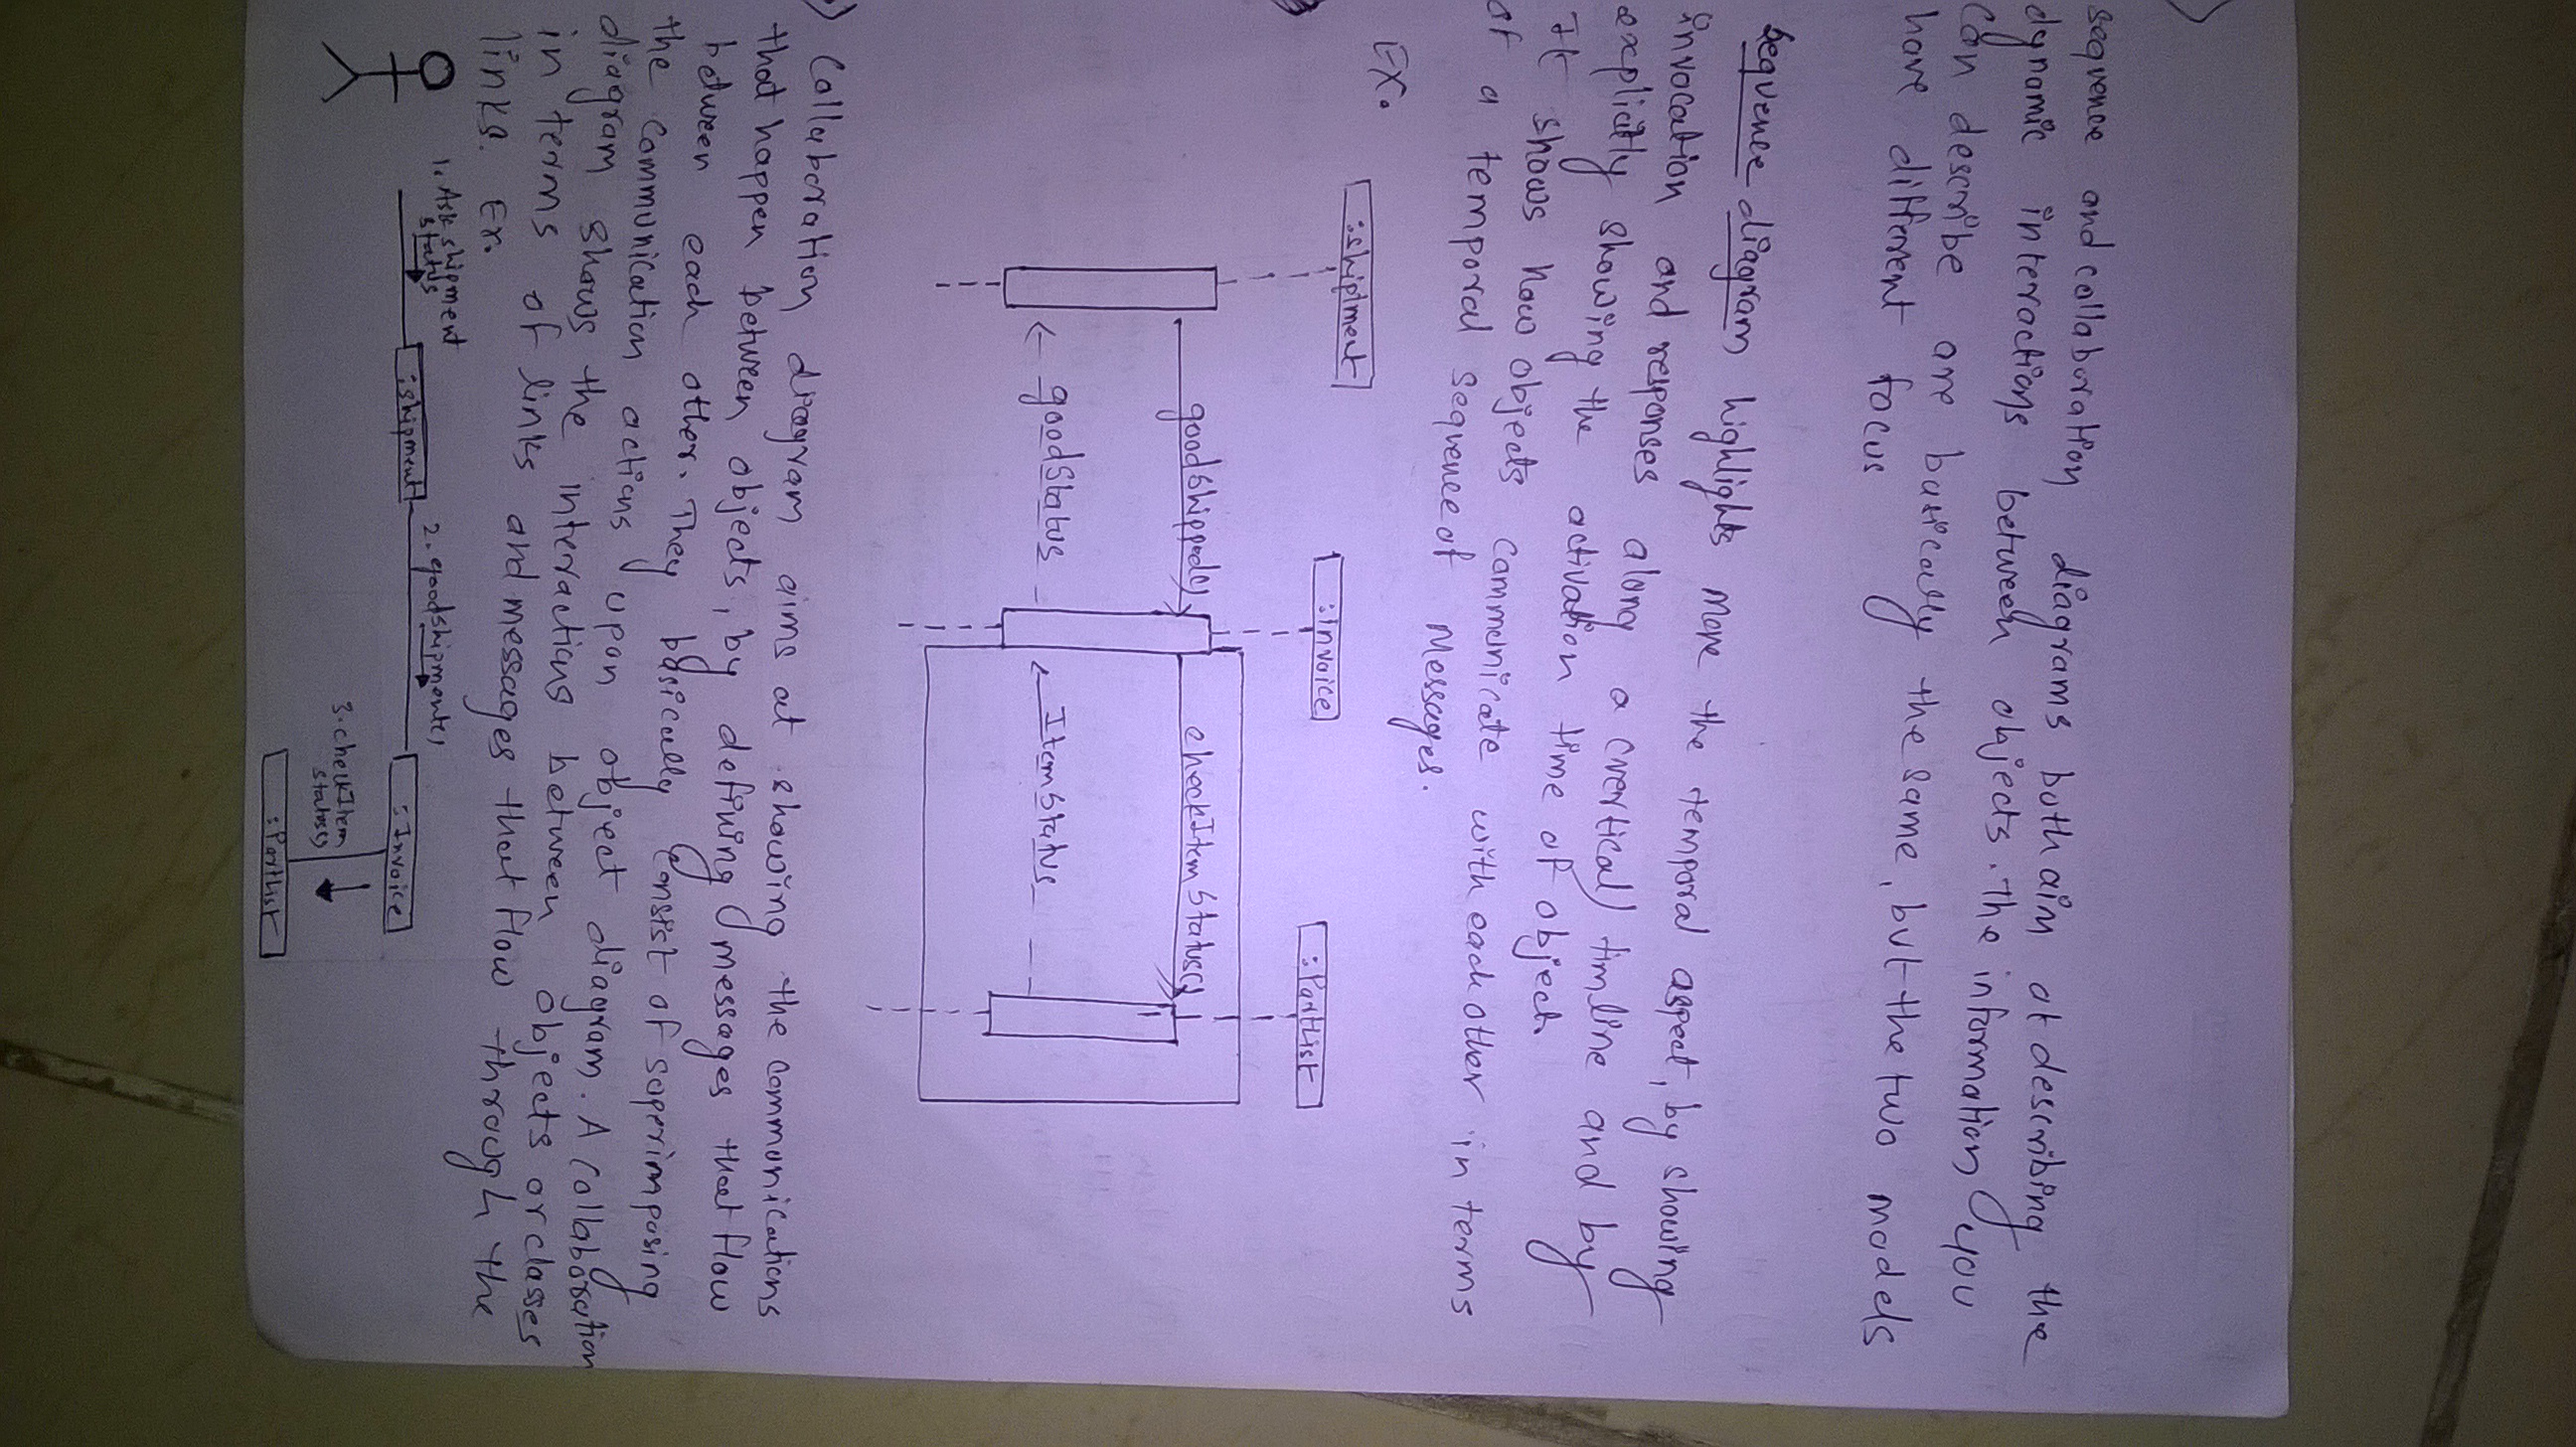 sequence and collaboration diagrams both aim at describing the
dynamic interactions between objects. the information you
can describe are basically the same, but the two models
have different focus
Sequence diagram highlights more the temporal aspect, by showing
invocation and responses along a (vertical) timline and by
explicitly showing the activation time of object.
It shows how objects communicate with each other in terms
of a temporal sequence of messages.
Ex.
:shipment
:Invoice
:PartList
checkItemStatus()
goodStatus
ItemStatus
) Collaboration diagram aims at showing the communications
that happen between objects, by defining messages that flow
between each other. They basically consist of superimposing
the communication actions upon object diagram. A Collaboration
diagram shows the interactions between objects or classes
in terms of links and messages that flow through the
links. Ex.
1. Ask shipment
status
:shipment
2. goodshipment()
:Invoice
3. checkItem
status()
:PartList